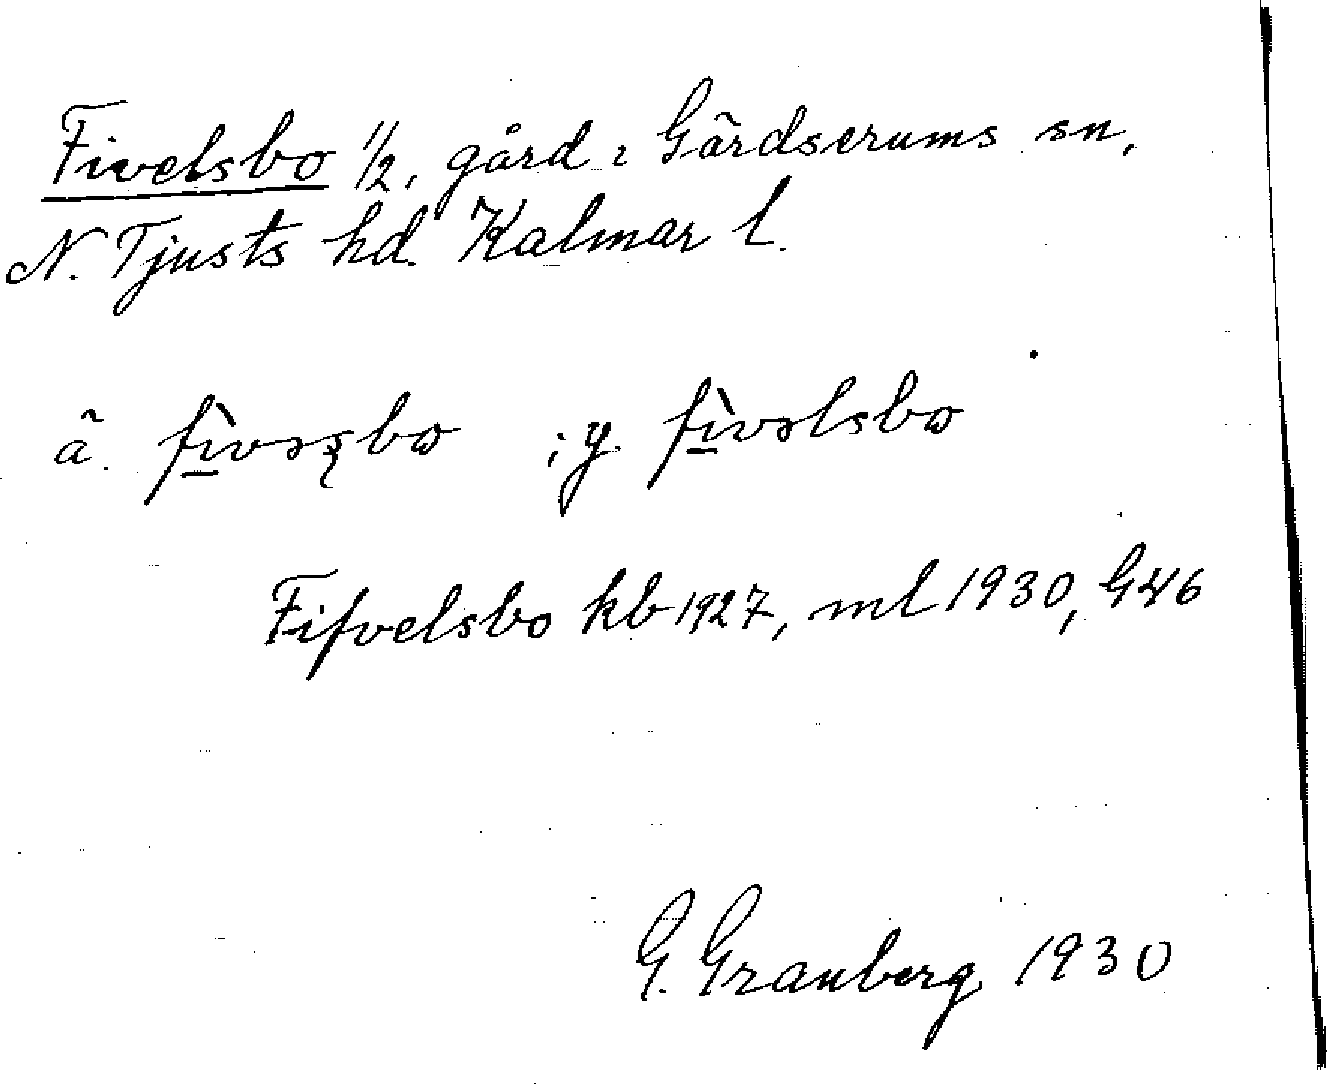 Fivelsbo 1/2, gård i Gärdserums sn,
N. Tjusts hd. Kalmar l.
ä. fìvəs̨bω ; y. fìvəlsbω
Fifvelsbo kb 1927, ml 1930, G46
G. Granberg 1930